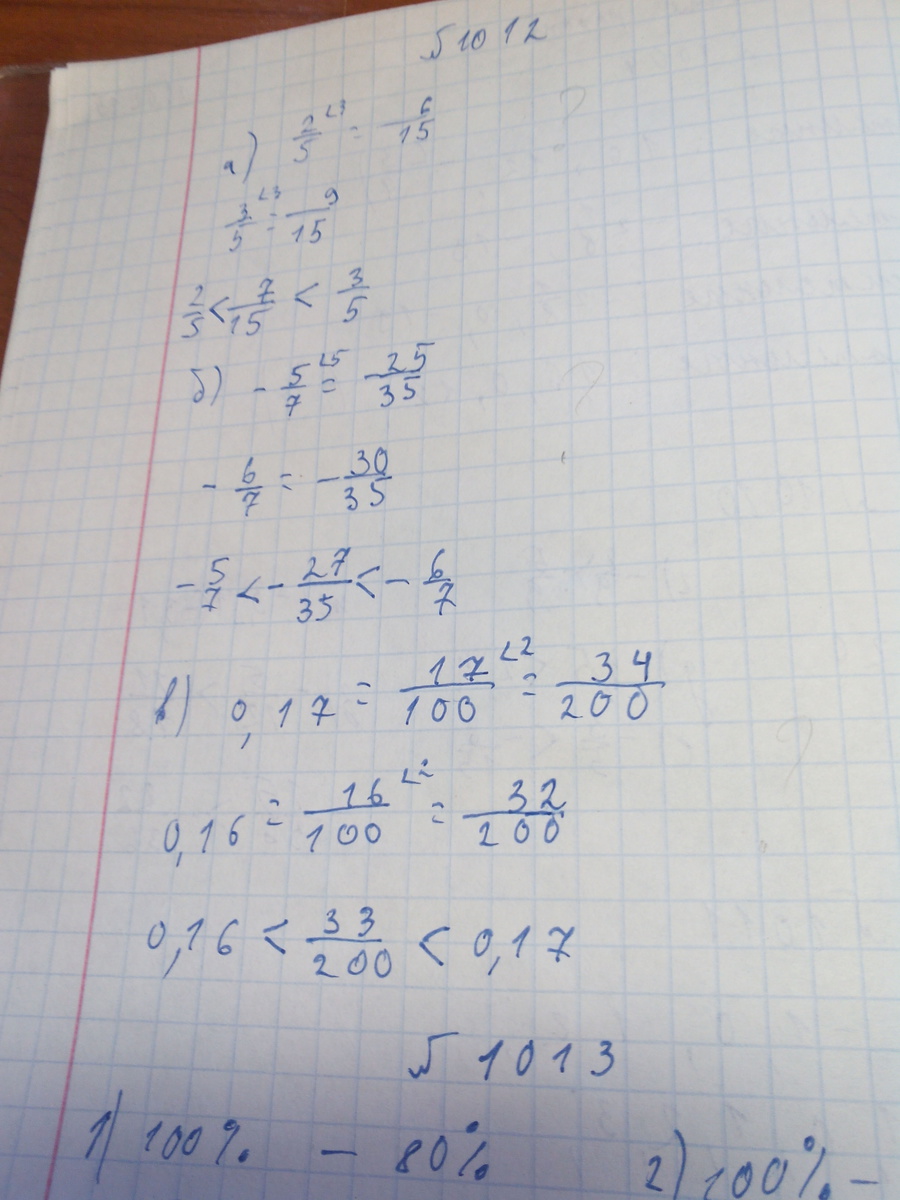 №1012
а) 2/5 ∠3 = 6/15
3/5 ∠3 = 9/15
2/5 < 7/15 < 3/5
б) - 5/7 ∠5 = 25/35
- 6/7 = - 30/35
- 5/7 < - 27/35 < - 6/7
в) 0,17 = 17/100 ∠2 = 34/200
0,16 = 16/100 ∠2 = 32/200
0,16 < 33/200 < 0,17
№ 1013
1) 100% - 80% 2) 100% -